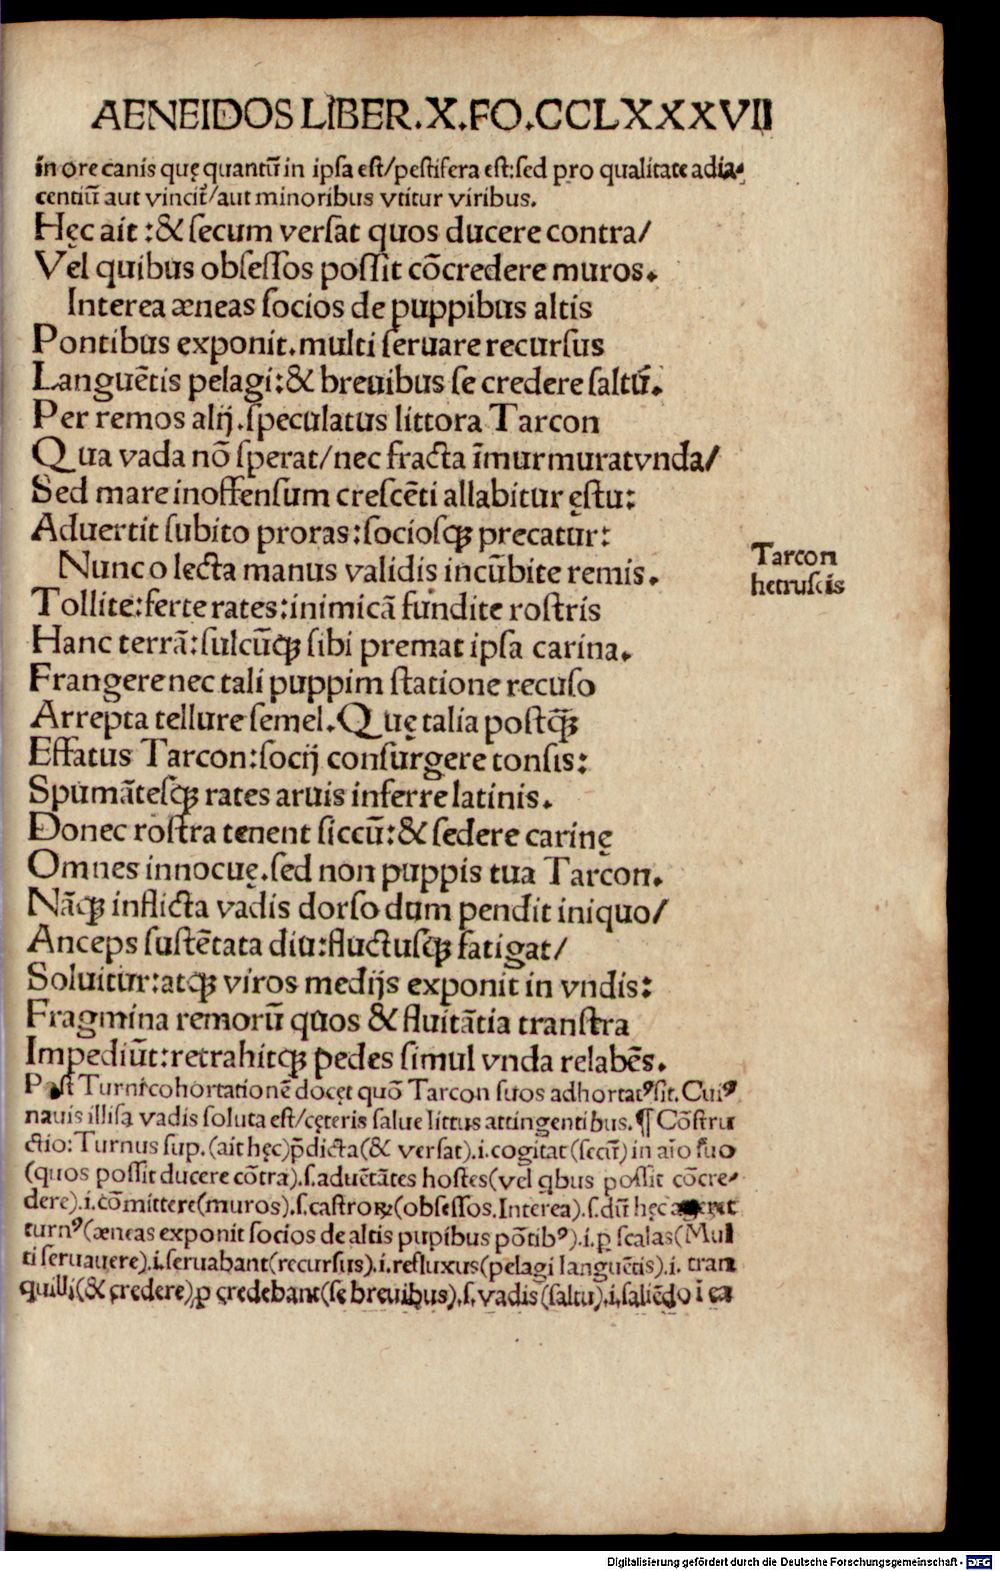 AENEIDOS LIBER.X.FO.CCLXXXVII
in ore canis quę quantū in ipsa est/pestifera est:sed pro qualitate adia⸗
centiū aut vincit̃/aut minoribus vtitur viribus.
Hęc ait :& secum versat quos ducere contra/
Vel quibus obsessos possit cōcredere muros.
Interea æneas socios de puppibus altis
Pontibus exponit.multi seruare recursus
Languētis pelagi:& breuibus se credere saltū.
Per remos alij.speculatus littora Tarcon
Qua vada nō sperat/nec fracta īmurmurat vnda/
Sed mare inoffensum crescēti allabitur ęstu:
Aduertit subito proras:sociosqꝫ precatur:
Nunc o lecta manus validis incūbite remis.
Tarcon
hetruscis
Tollite:ferte rates:inimicā fundite rostris
Hanc terrā:sulcūqꝫ sibi premat ipsa carina.
Frangere nec tali puppim statione recuso
Arrepta tellure semel.Quę talia postqꝫ̄
Effatus Tarcon:socij consurgere tonsis:
Spumātesqꝫ rates aruis inferre latinis.
Donec rostra tenent siccū:& sedere carinę
Omnes innocuę.sed non puppis tua Tarcon.
Nāqꝫ inflicta vadis dorso dum pendit iniquo/
Anceps sustētata diu:fluctusqꝫ fatigat/
Soluitur:atqꝫ viros medijs exponit in vndis:
Fragmina remorū quos & fluitātia transtra
Impediūt:retrahitqꝫ pedes simul vnda relabēs.
Post Turni cohortationē docet quō Tarcon suos adhortatꝰ sit. Cuiꝰ
nauis illisa vadis soluta est/cęteris salue littus attingentibus.¶ Cōstru
ctio: Turnus sup.(ait hęc)p̄dicta(& versat).i.cogitat(secū)in aīo suo
(quos possit ducere cōtra).s.aduētātes hostes(vel qbus possit cōcre⸗
dere).i.cōmittere(muros).s.castroꝝ(obsessos.Interea).s.dū hęc ageret
turnꝰ(æneas exponit socios de altis pupibus pōtibꝰ).i.ꝑ scalas(Mul
ti seruauere).i.seruabant(recursus).i.refluxus(pelagi languētis).i. tran
quilli(& credere)ꝓ credebant(se breuibus).s.vadis(saltu).i.saliēdo ī ea
Digitalisierung gefördert durch die Deutsche Forschungsgemeinschaft - DFG